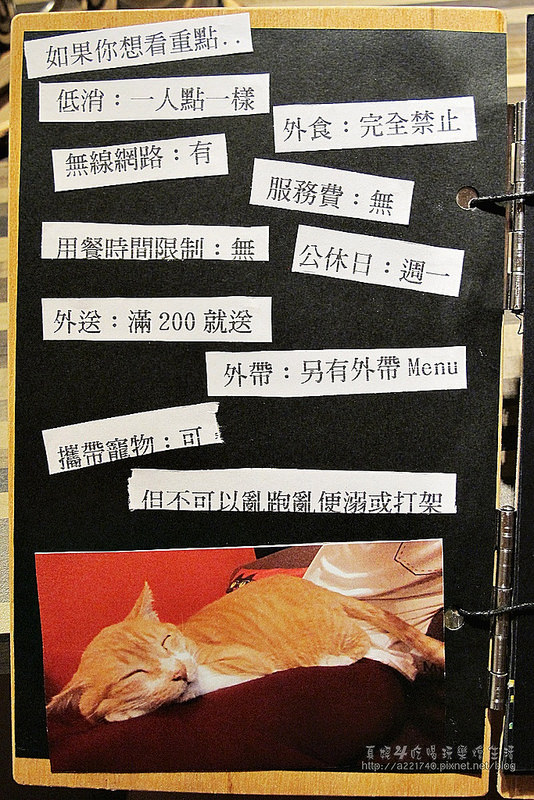 如果你想看重點..
低消：一人點一樣
外食：完全禁止
無線網路：有
服務費：無
用餐時間限制：無
公休日：週一
外送：滿200就送
外帶：另有外帶Menu
攜帶寵物：可
但不可以亂跑亂便溺或打架
http://a221740.pixnet.net/blog